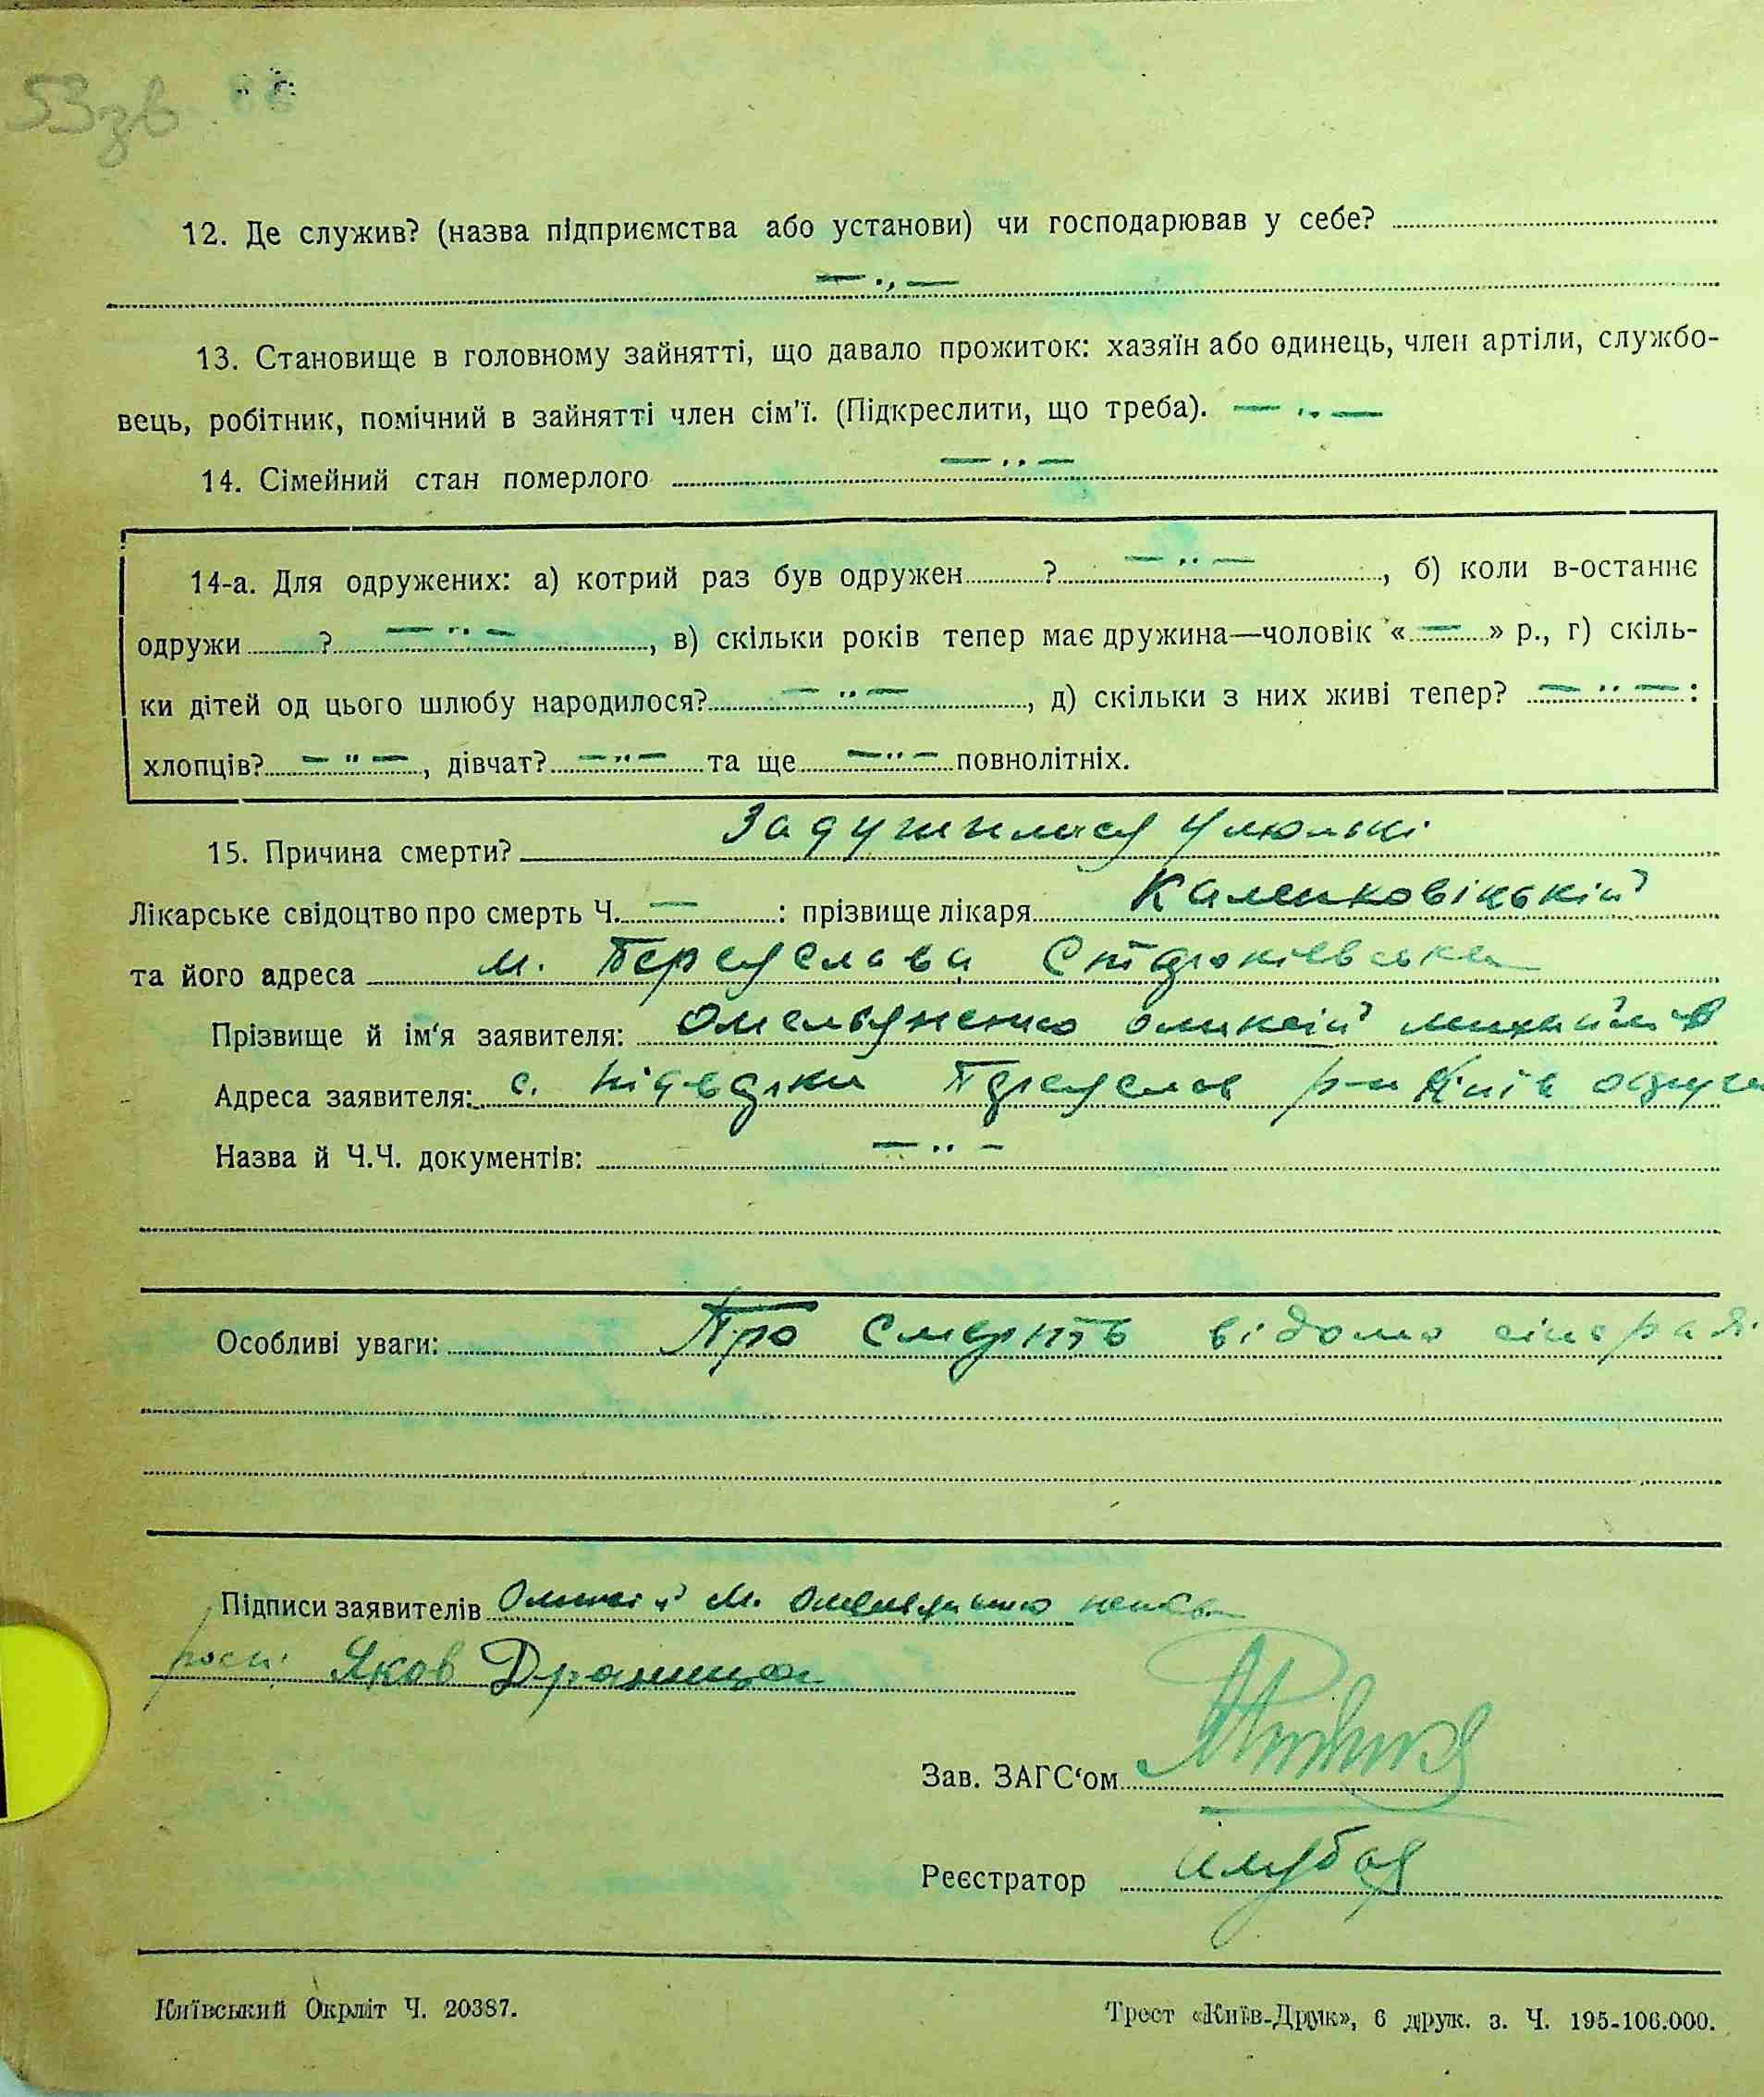 53зв
12. Де служив? (назва підприємства або установи) чи господарював у себе?
— ·, —
13. Становище в головному зайнятті, що давало прожиток: хазяїн або одинець, член артіли, службо-
вець, робітник, помічний в зайнятті член сім'ї. (Підкреслити, що треба). — ·· —
14. Сімейний стан померлого — ·· —
14-а. Для одружених: а) котрий раз був одружен ? — ·· — , б) коли в-останнє
одружи ? — ·· — , в) скільки років тепер має дружина—чоловік « — » р., г) скіль-
ки дітей од цього шлюбу народилося? — ·· — , д) скільки з них живі тепер? — ·· — :
хлопців? — " — , дівчат? — " — та ще — ·· — повнолітніх.
15. Причина смерти? Задушилася у люлькі
Лікарське свідоцтво про смерть Ч. — : прізвище лікаря
та його адреса м. Переяслава
Прізвище й ім'я заявителя: Омельяненко Оликсій Михайлов
Адреса заявителя: с. Підварки Переяслов р-н Київ округи
Назва й Ч.Ч. документів: — ·· —
Особливі уваги: Про смерть відомо сільраді
Підписи заявителів Оликсій М. Омельяненко
Яков
Зав. ЗАГС'ом
Реєстратор
Київський Окрліт Ч. 20387.
Трест «Київ-Друк», 6 друк. з. Ч. 195-106.000.